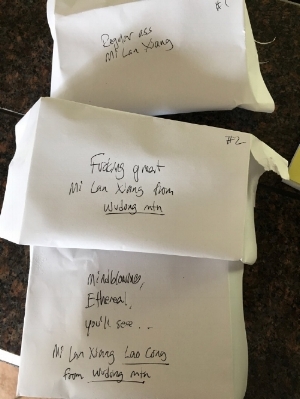 #1
Regular ass
Mi Lan Xiang
#2
Fucking great
Mi Lan Xiang from
Wudong mtn
Mindblowing,
Ethereal,
you'll see...
Mi Lan Xiang Lao Cong
from Wudong mtn